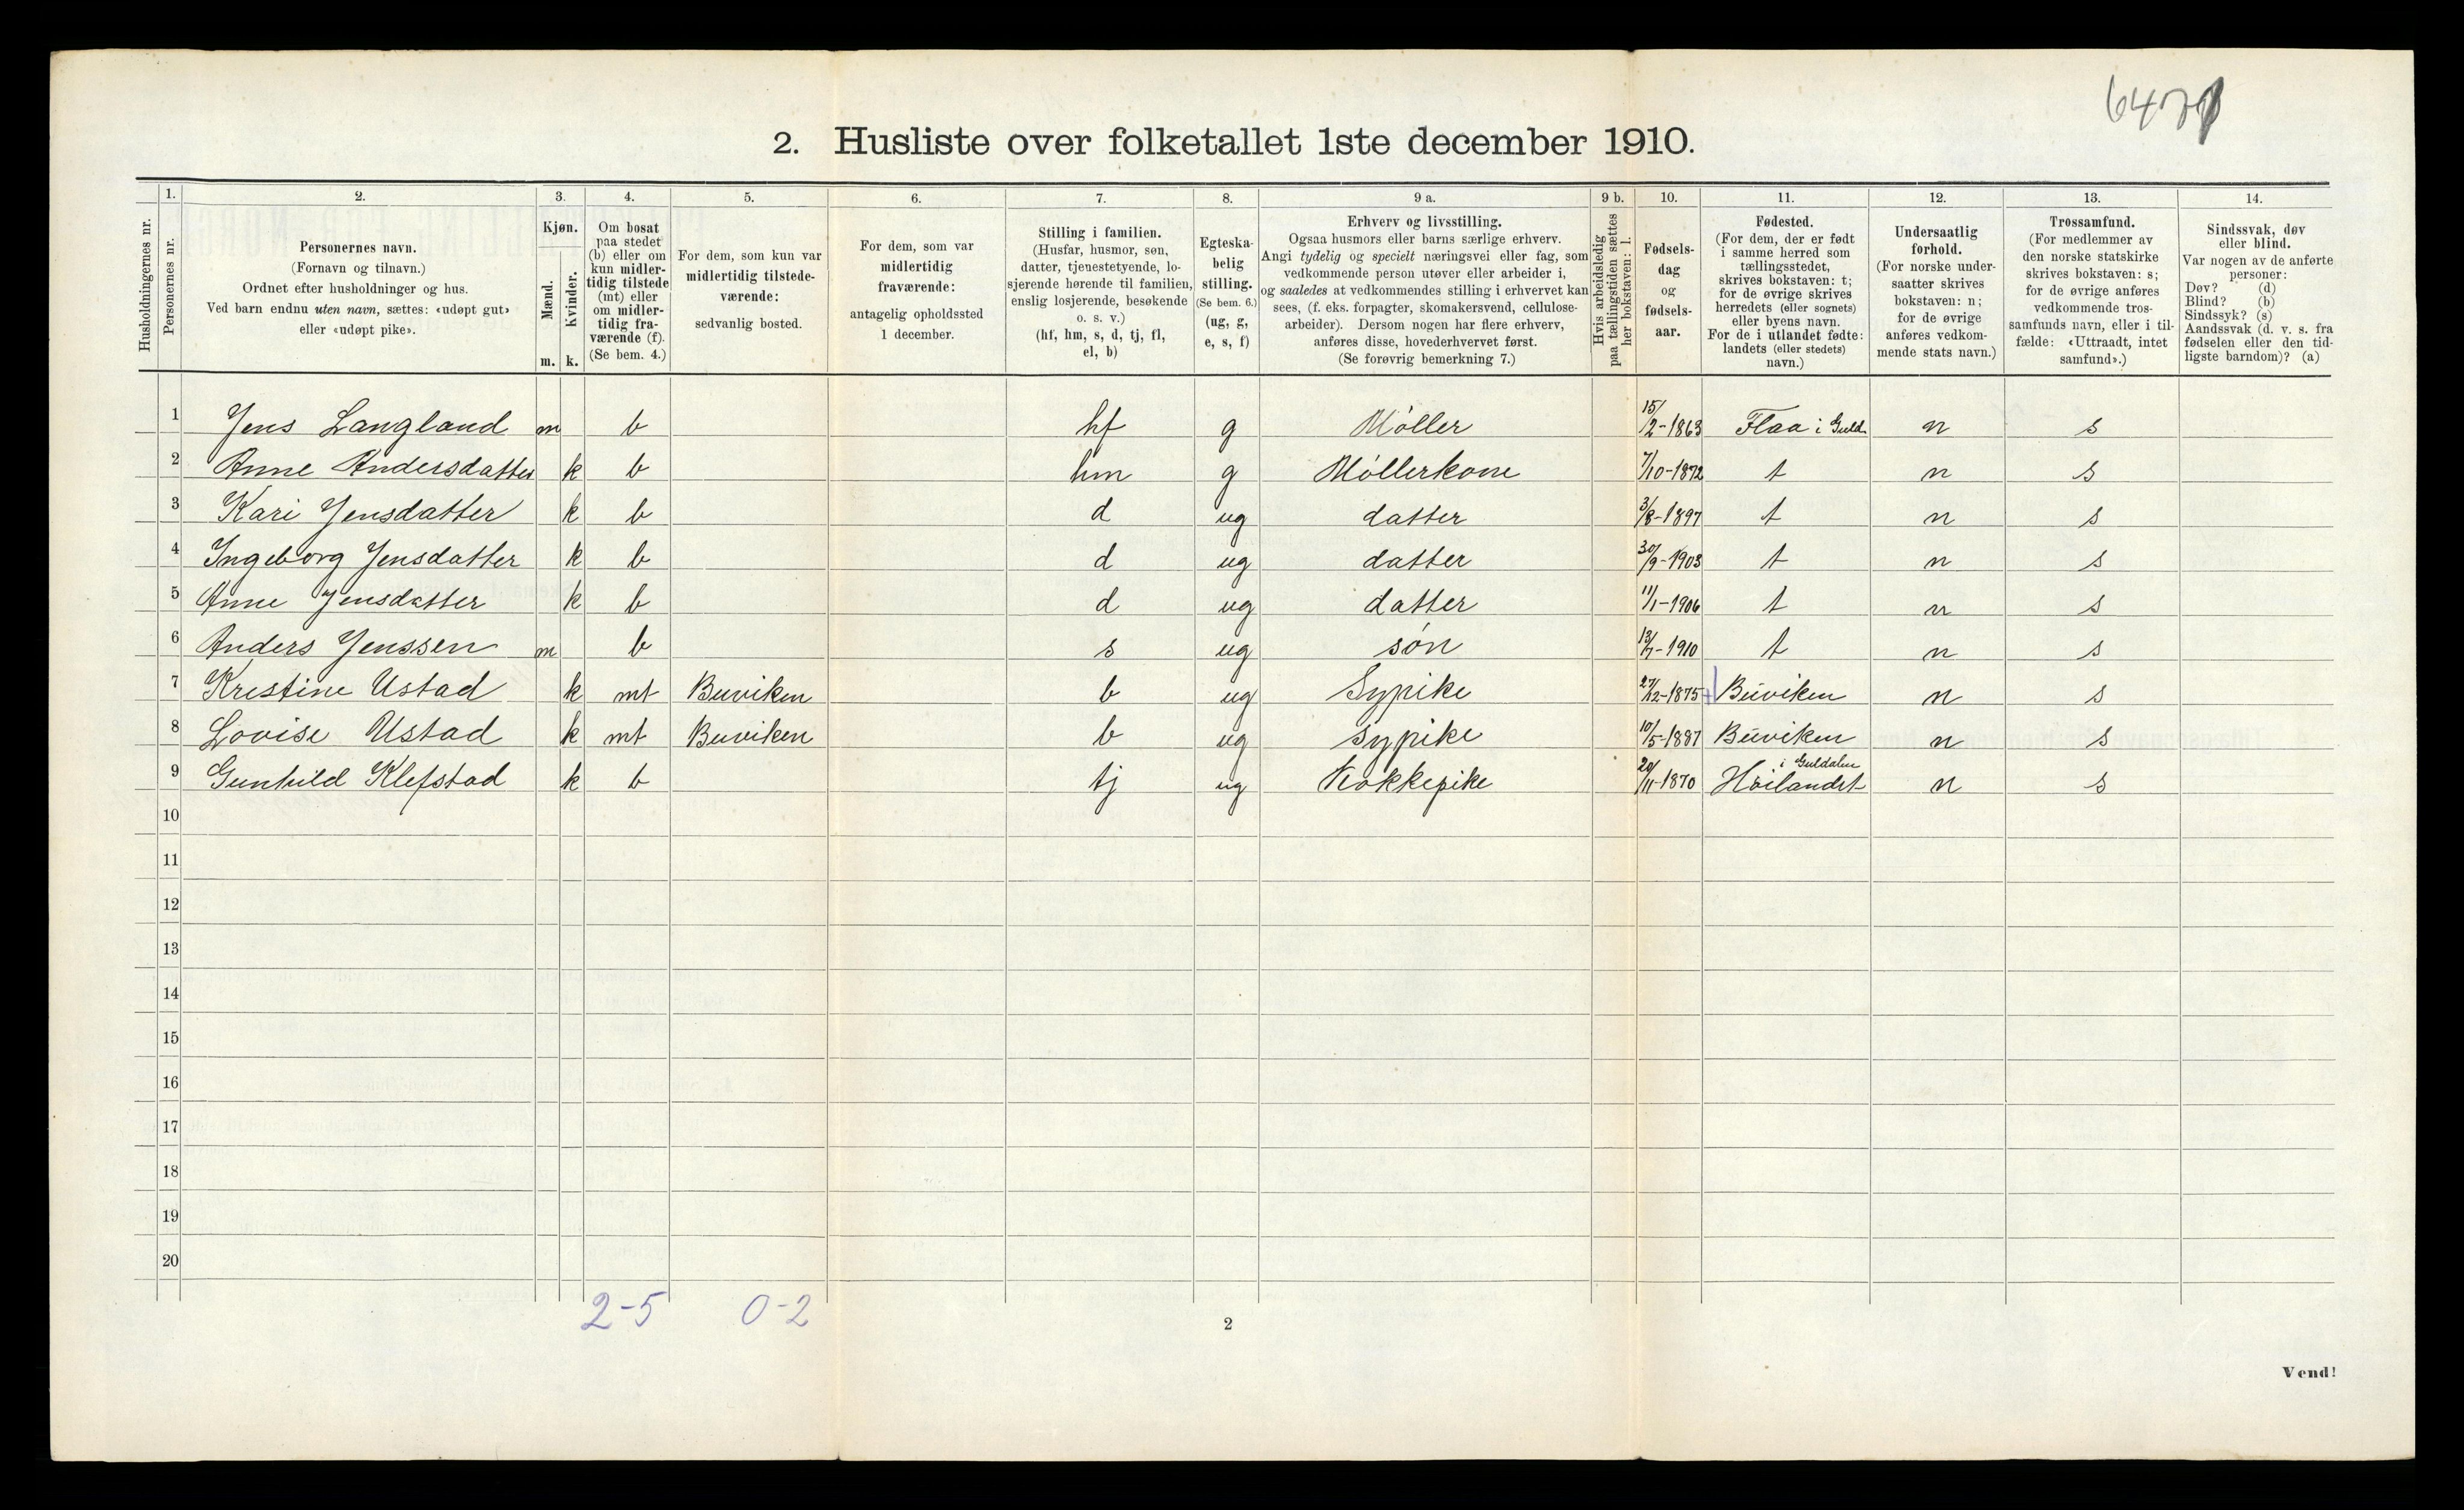 6471
2. Husliste over folketallet 1ste december 1910.
Husholdningernes nr.
1. Personernes nr.
2. Personernes navn. (Fornavn og tilnavn.) Ordnet efter husholdninger og hus. Ved barn endnu uten navn, sættes: «udøpt gut» eller «udøpt pike».
3. Kjøn. Mænd. m. Kvinder. k.
4. Om bosat paa stedet (b) eller om kun midlertidig tilstede (mt) eller om midlertidig fraværende (f). (Se bem. 4.)
5. For dem, som kun var midlertidig tilstedeværende: sedvanlig bosted.
6. For dem, som var midlertidig fraværende: antagelig opholdssted 1 december.
7. Stilling i familien. (Husfar, husmor, søn, datter, tjenestetyende, losjerende hørende til familien, enslig losjerende, besøkende o. s. v.) (hf, hm, s, d, tj, fl, el, b)
8. Egteskabelig stilling. (Se bem. 6.) (ug, g, e, s, f)
9 a. Erhverv og livsstilling. Ogsaa husmors eller barns særlige erhverv. Angi tydelig og specielt næringsvei eller fag, som vedkommende person utøver eller arbeider i, og saaledes at vedkommendes stilling i erhvervet kan sees, (f. eks. forpagter, skomakersvend, cellulosearbeider). Dersom nogen har flere erhverv, anføres disse, hovederhvervet først. (Se forøvrig bemerkning 7.)
9 b. Hvis arbeidsledig paa tællingstiden sættes her bokstaven: l.
10. Fødselsdag og fødselsaar.
11. Fødested. (For dem, der er født i samme herred som tællingsstedet, skrives bokstaven: t; for de øvrige skrives herredets (eller sognets) eller byens navn. For de i utlandet fødte: landets (eller stedets) navn.)
12. Undersaatlig forhold. (For norske undersaatter skrives bokstaven: n; for de øvrige anføres vedkommende stats navn.)
13. Trossamfund. (For medlemmer av den norske statskirke skrives bokstaven: s; for de øvrige anføres vedkommende trossamfunds navn, eller i tilfælde: «Uttraadt, intet samfund».)
14. Sindssvak, døv eller blind. Var nogen av de anførte personer: Døv? (d) Blind? (b) Sindssyk? (s) Aandssvak (d. v. s. fra fødselen eller den tidligste barndom)? (a)
1 Jens Langland m b hf g Møller 15/2-1863 Flaa i Guld. n s
2 Anne Andersdatter k b hm g Møllerkone 7/10-1872 t n s
3 Kari Jensdatter k b d ug datter 3/8-1897 t n s
4 Ingeborg Jensdatter k b d ug datter 30/9-1903 t n s
5 Anne Jensdatter k b d ug datter 11/1-1906 t n s
6 Anders Jenssen m b s ug søn 13/7-1910 t n s
7 Kristine Ustad k mt Buviken b ug Sypike 27/12-1875 Buviken n s
8 Lovise Ustad k mt Buviken b ug Sypike 10/5-1887 Buviken n s
9 Gunhild Klefstad k b tj ug Kokkepike 20/11-1870 Høilandet i Guldalen n s
10
11
12
13
14
15
16
17
18
19
20
2-5 0-2
2
Vend!